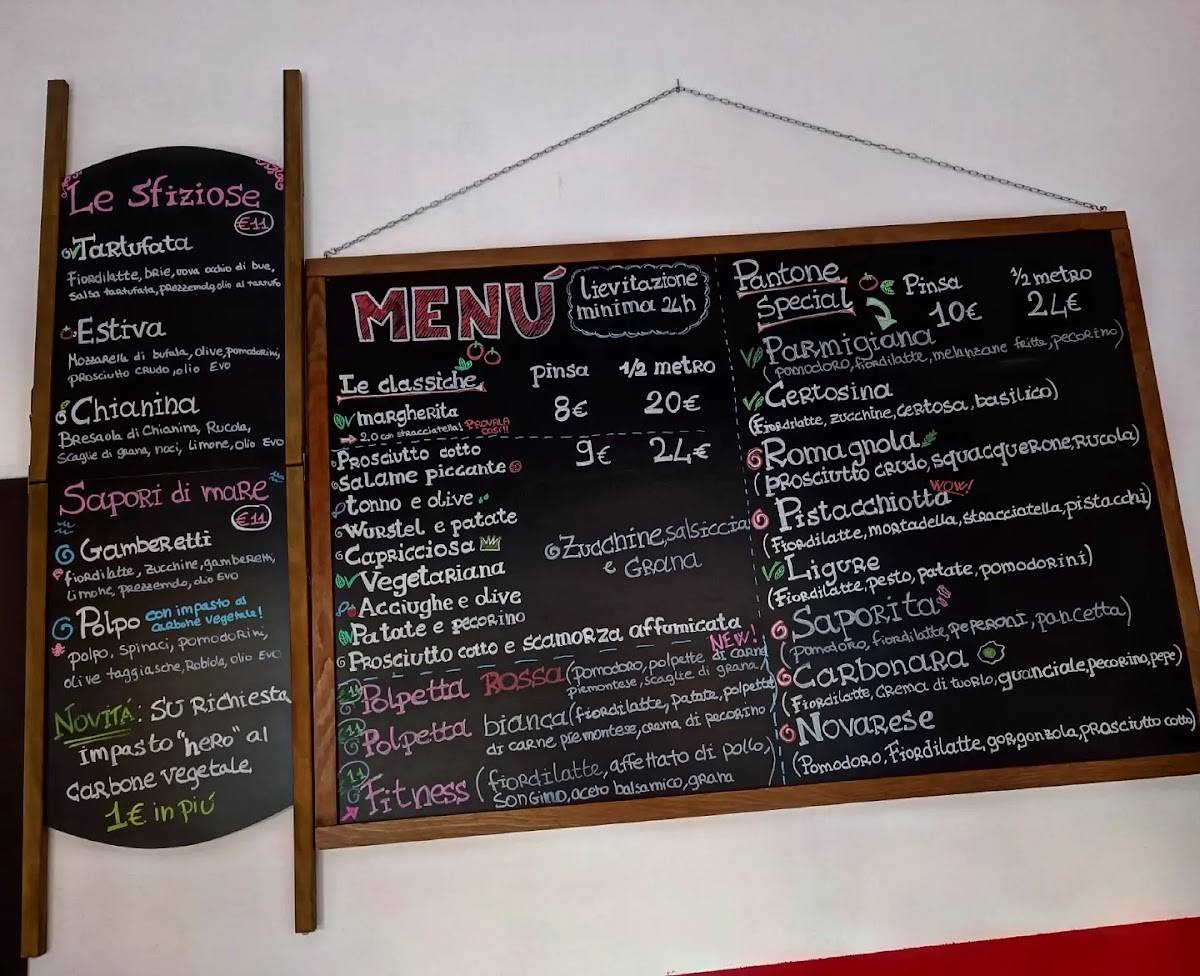 Le Sfiziose
€11
Tartufata
Fiordilatte, brie, uova occhio di bue,
Salsa tartufata, prezzemolo, olio al tartufo
Estiva
Mozzarella di bufala, olive, pomodorini,
prosciutto crudo, olio Evo
Chianina
Bresaola di Chianina, Rucola,
Scaglie di grana, noci, Limone, olio Evo
Sapori di mare
€11
Gamberetti
fiordilatte, zucchine, gamberetti,
limone, prezzemolo, olio EVO
Polpo con impasto al
carbone vegetale!
polpo, spinaci, pomodorini,
olive taggiasche, Robiola, olio Evo
Novitá: su richiesta
impasto "nero" al
carbone vegetale
1€ in piú
MENÚ
Lievitazione
minima 24h
Le classiche
Pinsa
1/2 metro
margherita
8€
20€
2.0 con stracciatella! PROVALA
COSÌ!!
Prosciutto cotto
9€
24€
Salame piccante
tonno e olive
Wurstel e patate
Capricciosa
Vegetariana
Acciughe e olive
Patate e pecorino
Prosciutto cotto e scamorza affumicata
Zucchine, salsiccia
e Grana
NEW!
11 Polpetta Rossa (Pomodoro, polpette di carne
piemontese, scaglie di grana)
11 Polpetta bianca (fiordilatte, patate, polpette
di carne piemontese, crema di pecorino)
11 Fitness (fiordilatte, affettato di pollo,
songino, aceto balsamico, grana)
Pantone
Special
Pinsa
10€
1/2 metro
24€
Parmigiana
(pomodoro, fiordilatte, melanzane fritte, pecorino)
Certosina
(Fiordilatte, zucchine, certosa, basilico)
Romagnola
(prosciutto crudo, squacquerone, rucola)
Pistacchiotta WOW!
(Fiordilatte, mortadella, stracciatella, pistacchi)
Ligure
(Fiordilatte, pesto, patate, pomodorini)
Saporita
(Pomodoro, fiordilatte, peperoni, pancetta)
Carbonara
(Fiordilatte, crema di tuorlo, guanciale, pecorino, pepe)
Novarese
(Pomodoro, Fiordilatte, gorgonzola, prosciutto cotto)